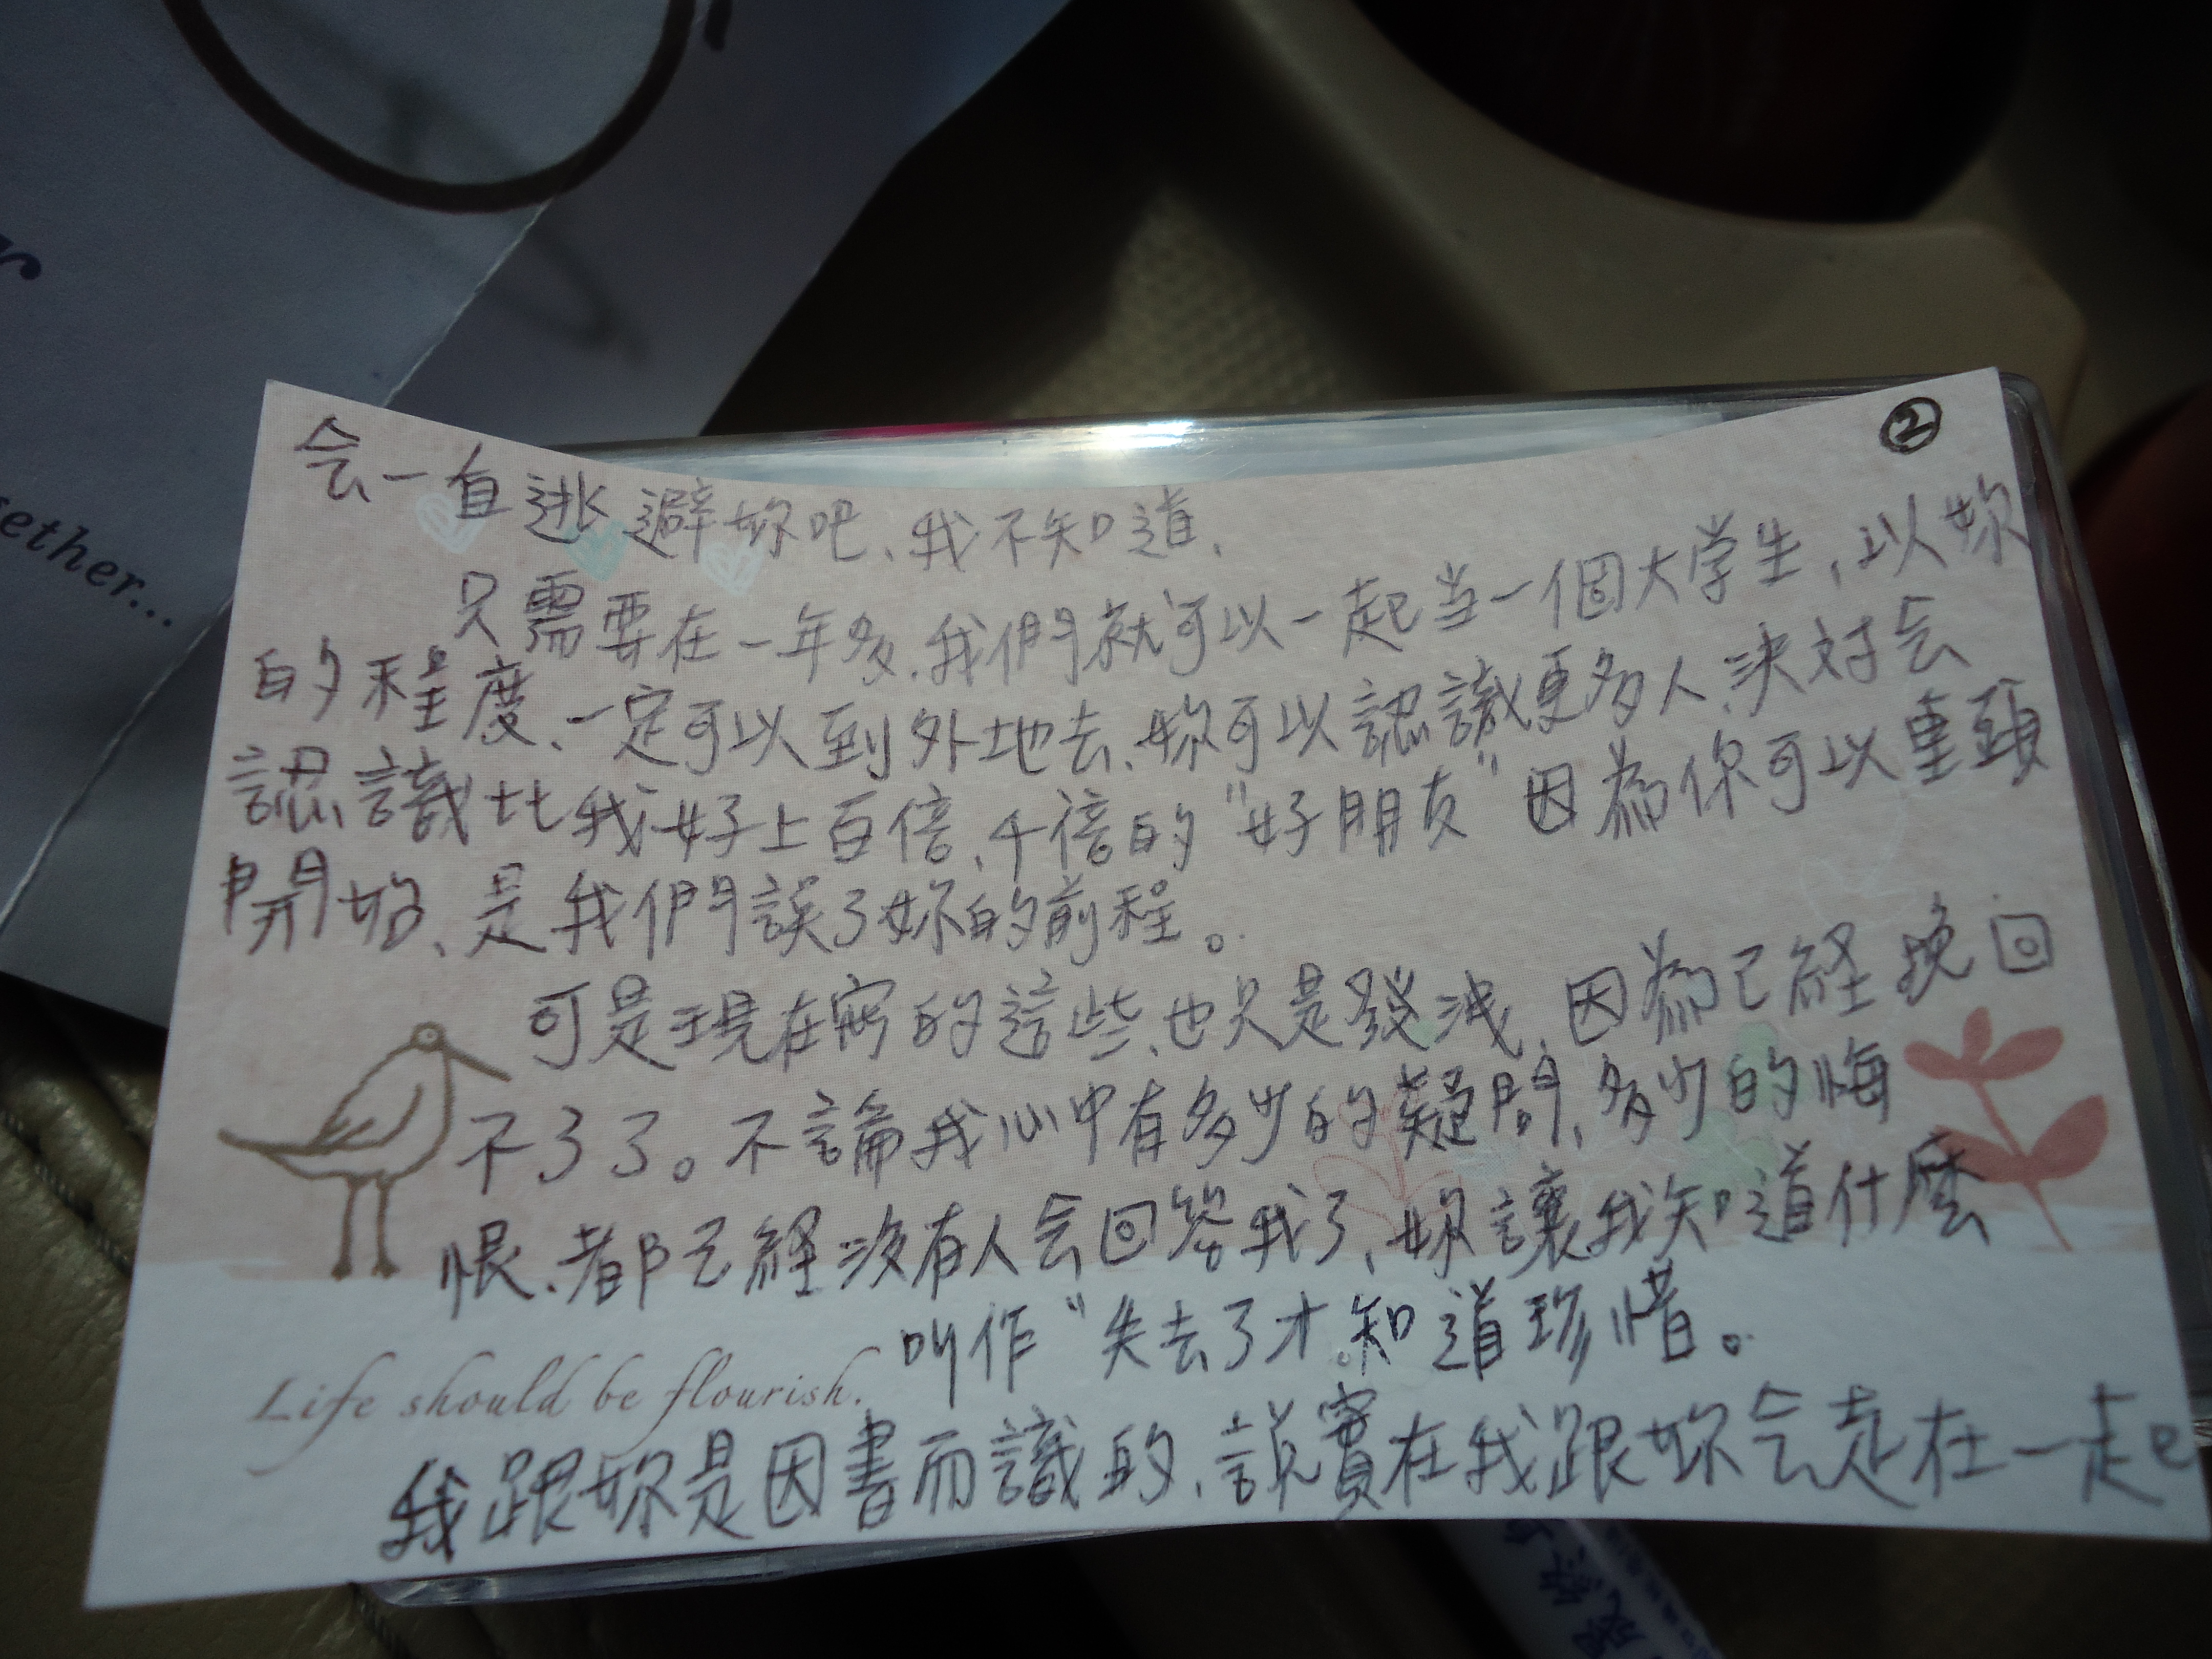 ②
会一直逃避妳吧、我不知道、
只需要在一年多、我們就可以一起当一個大学生，以妳
的程度、一定可以到外地去、妳可以認識更多人、決对会
認識比我好上百倍、千倍的"好朋友"因為你可以重頭
開始、是我們誤了妳的前程。
可是現在寫的這些、也只是發洩、因為已經挽回
不了了。不論我心中有多少的疑問、多少的悔
恨、都已經沒有人会回答我了、妳讓我知道什麼
叫作"失去了才知道珍惜。
Life should be flourish.
我跟妳是因書而識的、說實在我跟妳会走在一起
ether...